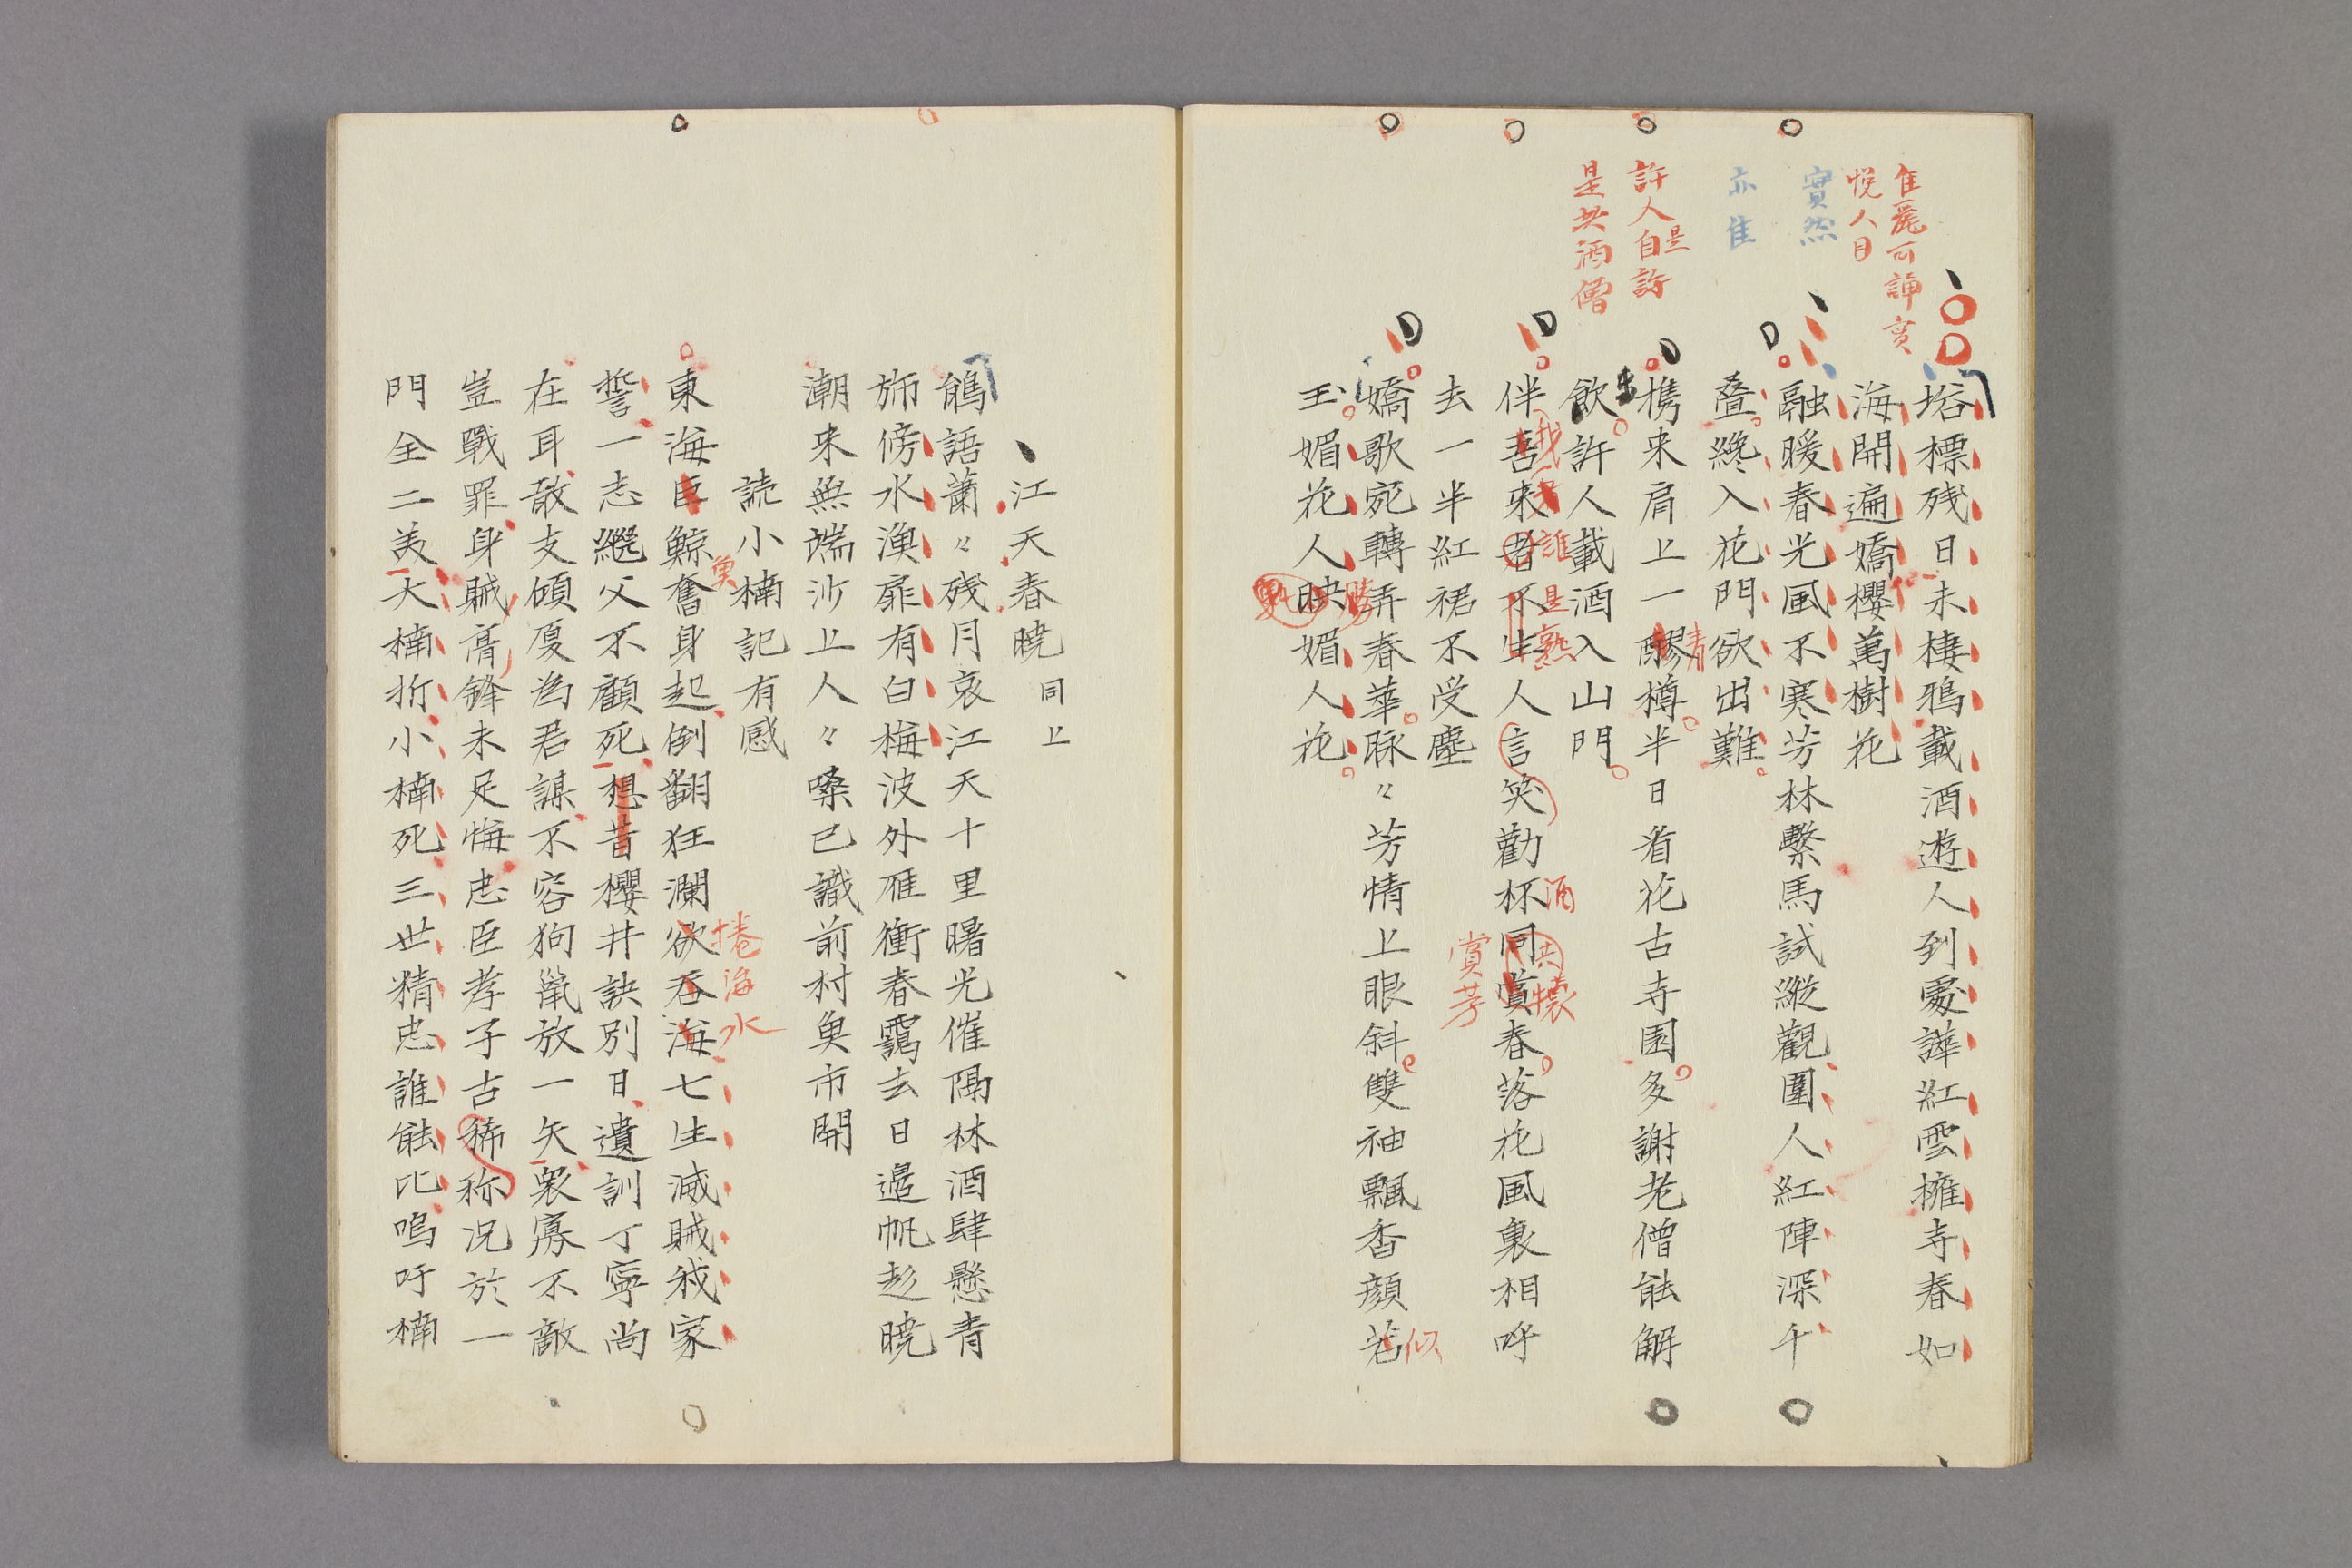 隹麗可誦實
悅人目
實然
亦隹
許人自許
是
是共酒僧
垎標残日未棲鴉載酒遊人到處譁紅雲擁寺春如
海開遍嬌櫻萬樹花
融暖春光風不寒芳林繫馬試縱觀圍人紅陣深千
疊纔入花門欲出難
携来肩上一醪樽半日看花古寺園多謝老僧能解
清
飲許人載酒入山門
伴吾來者不生人言笑勸杯同賞春落花風裏相呼
我
誰是熟
酒
共
賞芳
去一半紅裙不受塵
嬌歌宛轉弄春華脉々芳情上眼斜雙袖飄香顔若
勝
似
玉媚花人映媚人花
江天春曉 同上
鵃語蕭々残月哀江天十里曙光催隔林酒肆懸青
斾傍水漁扉有白梅波外雁衝春靄去日邉帆趁曉
潮来無端沙上人々嗓已識前村魚市開
読小楠記有感
東海巨鯨奮身起倒翻狂瀾欲吞海七生滅賊我家
魚
捲海水
誓一志繼父不顧死想昔櫻井訣別日遺訓丁寧尚
在耳敢支傾厦為君謀不容狗鼠放一矢衆寡不敵
豈戰罪身賊膏鋒未足悔忠臣孝子古稀称況於一
門全二美大楠折小楠死三世精忠誰能比嗚呼楠